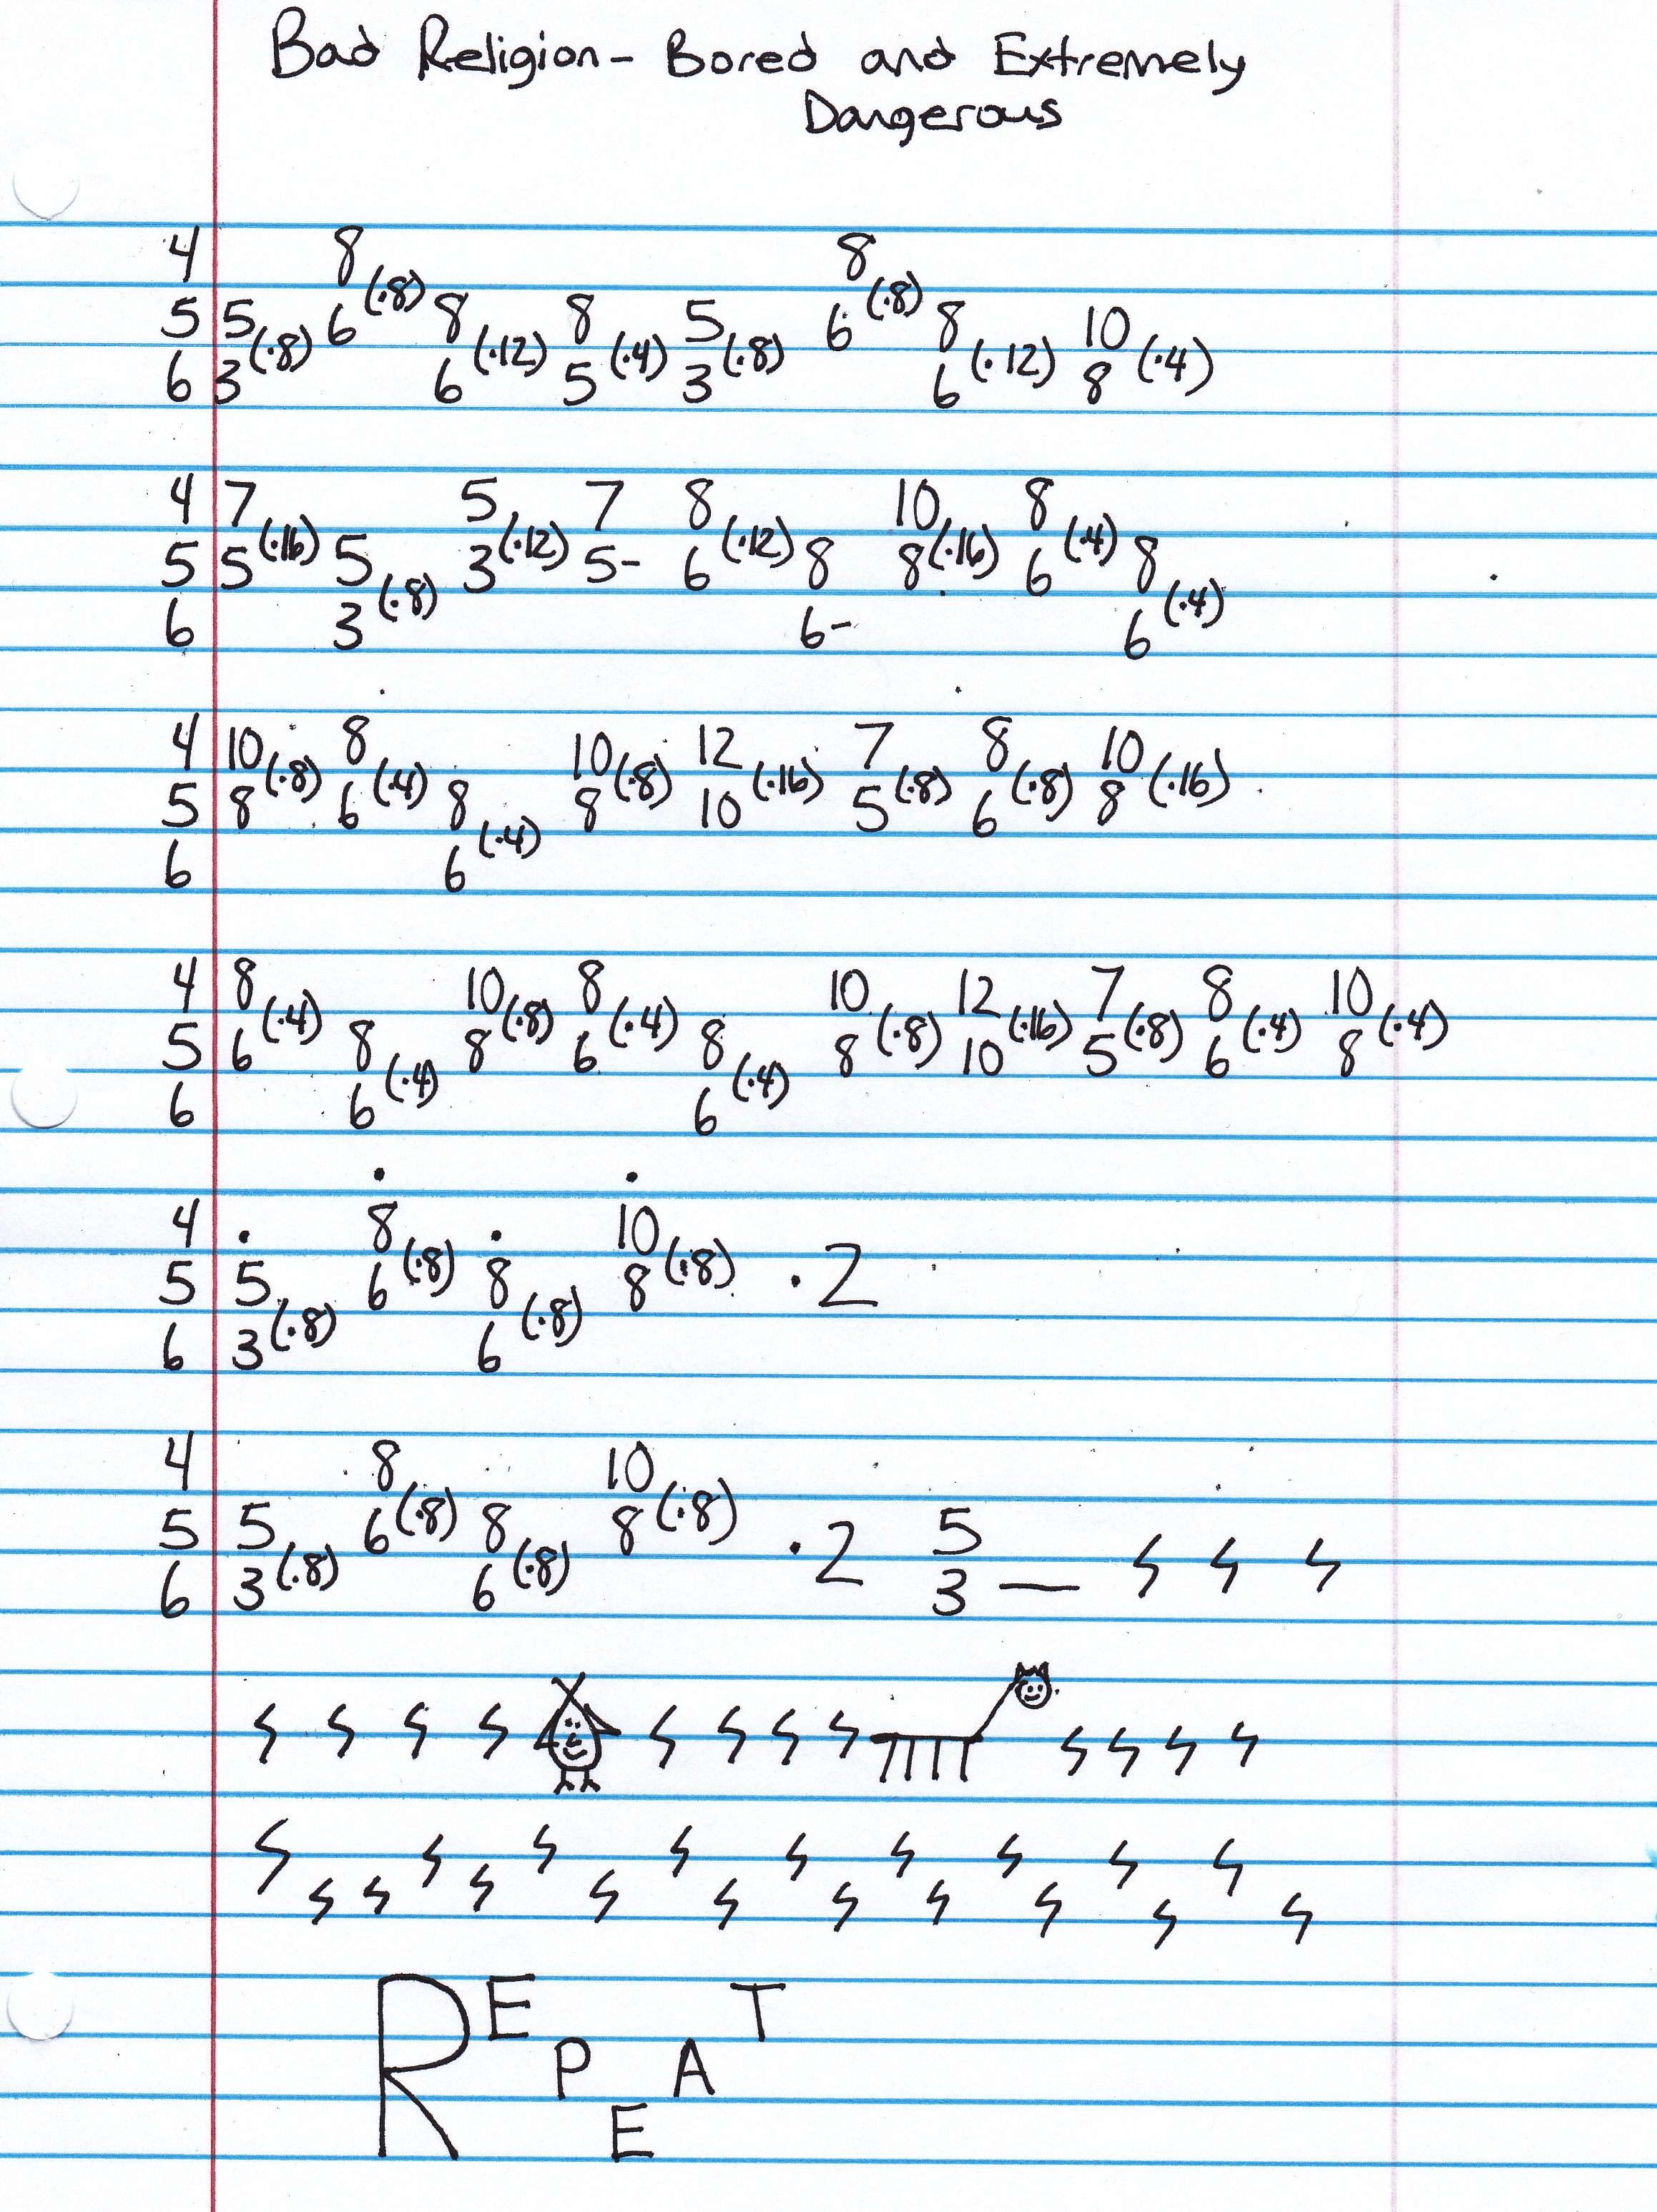 Bad Religion - Bored and Extremely
Dangerous
4 8 8
5 5 (.8) 6 (.8) 8 (.12) 8 (.4) 5 (.8) 6 (.8) 8 (.12) 10 (.4)
6 3 6 5 3 6 8
4 7 5 7 8 10 8
5 5 (.16) 5 (.8) 3 (.12) 5- 6 (.12) 8 8 (.16) 6 (.4) 8 (.4)
6 3 6- 6
4 10 8 10 12 7 8 10
5 8 (.8) 6 (.4) 8 (.4) 8 (.8) 10 (.16) 5 (.8) 6 (.8) 8 (.16)
6 6
4 8 10 8 10 12 7 8 10
5 6 (.4) 8 (.4) 8 (.8) 6 (.4) 8 (.4) 8 (.8) 10 (.16) 5 (.8) 6 (.4) 8 (.4)
6 6 6
4 8 10
5 5 (.8) 6 (.8) 8 (.8) 8 (.8) .2
6 3 6
4 8 10
5 5 (.8) 6 (.8) 8 (.8) 8 (.8) .2 5
6 3 6 3 —
REPEAT